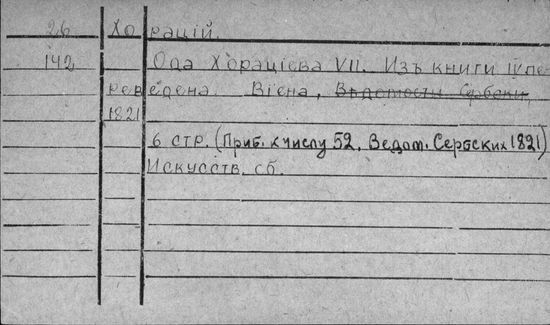 26 Хорацій.
142 Ода Хорацієва VII. Изъ книги II пе-
реведена. Віена, Вѣдомости Сербски,
1821
6 стр. (Приб. к числу 52. Ведом. Сербских 1821)
Искусств. сб.